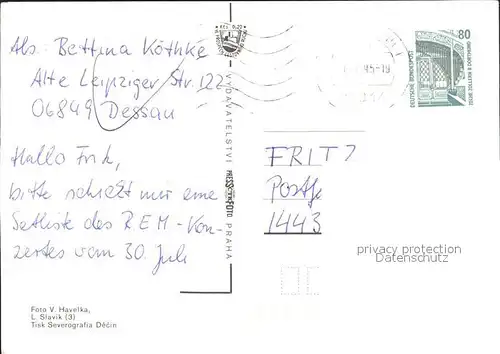 Abs. Bettina Köthke
Alte Leipziger Str. 122
06849 Dessau
Hallo Fritz,
bitte schickt mir eine
Setliste des REM-Kon-
zertes vom 30. Juli
Foto V. Havelka,
L. Slavík (3)
Tisk Severografia Děčín
VYDAVATELSTVÍ PRESSFOTO PRAHA
80
DEUTSCHE BUNDESPOST
ZECHE ZOLLERN II DORTMUND
FRITZ
Postf.
1443
privacy protection
Datenschutz